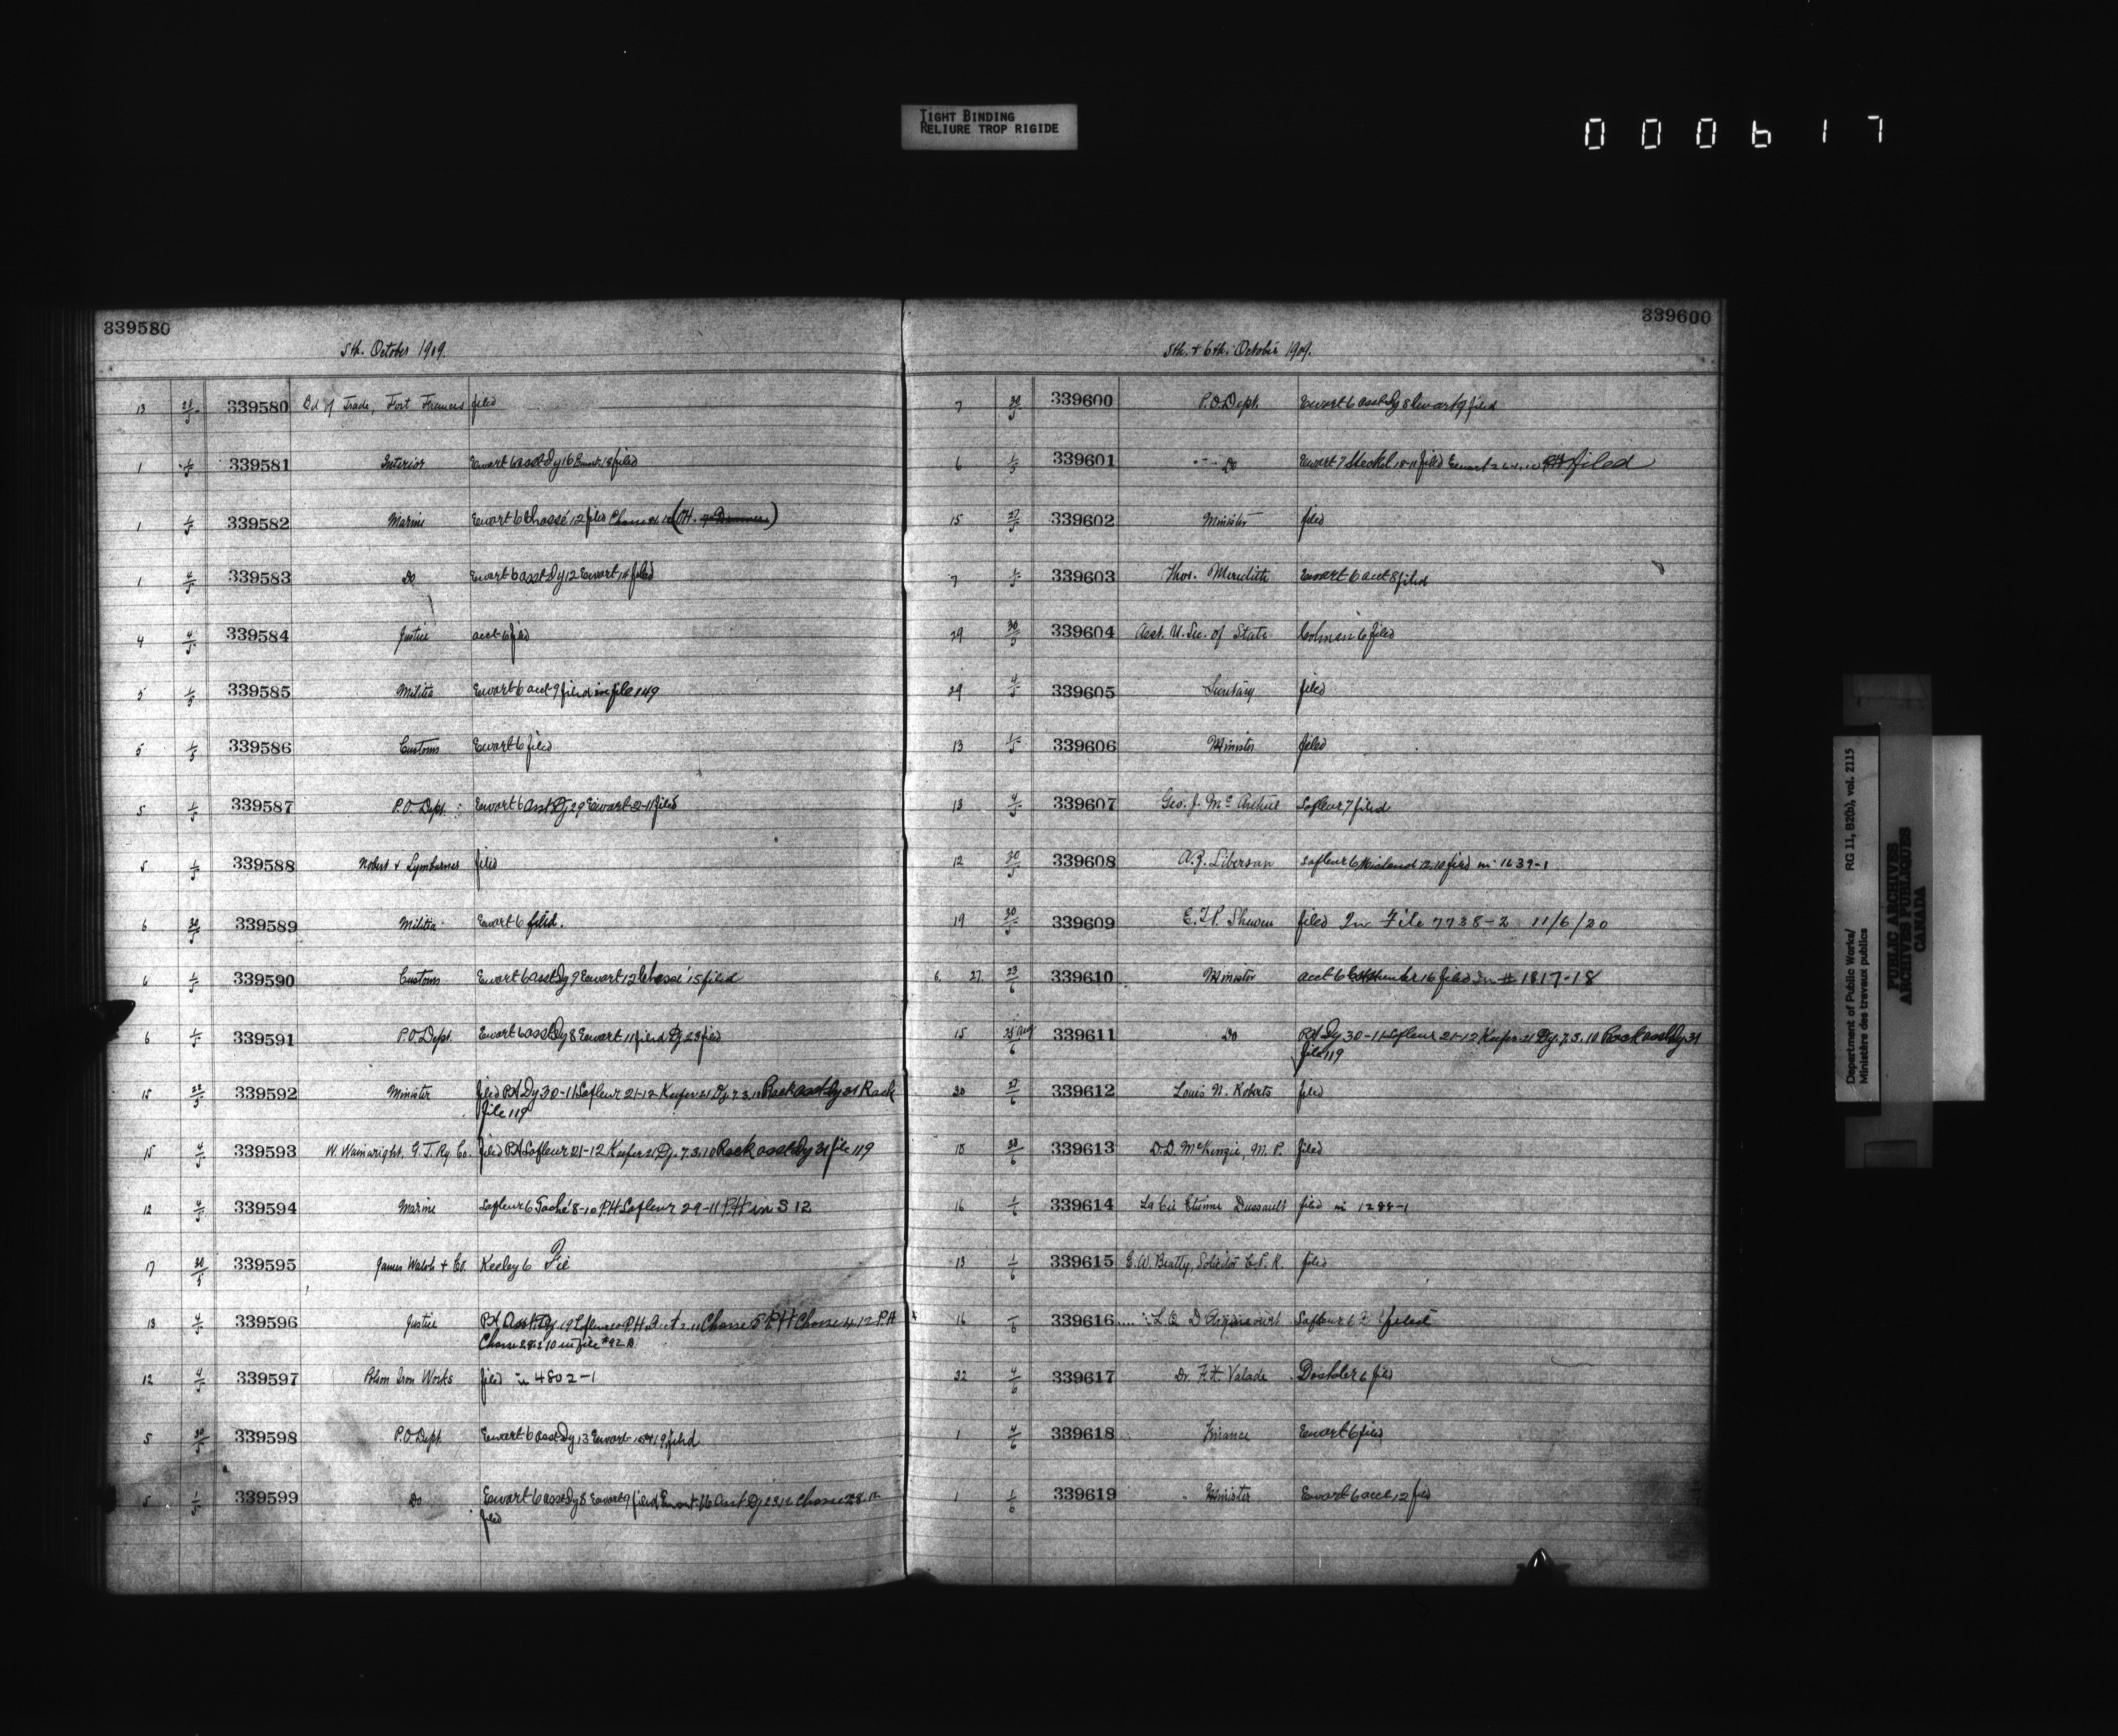 TIGHT BINDING
RELIURE TROP RIGIDE
000617
339580
5th. October 1909.
13 28/5 339580 Bd of Trade, Fort Frances filed
1 1/5 339581 Interior Ewart 6 asst Dy 16 Ewart 18 filed
1 1/5 339582 Marine Ewart 6 Chassé 12 filed Chasse
1 4/5 339583 Do Ewart 6 asst Dy 12 Ewart 14 filed
4 4/5 339584 Justice acct 6 filed
5 1/5 339585 Militia Ewart 6 acct 9 filed in file 149
5 1/5 339586 Customs Ewart 6 filed
5 1/5 339587 P.O. Dept. Ewart 6 Asst Dy 29 Ewart 2-11 filed
5 1/5 339588 Nobert & Lymburner filed
6 30/5 339589 Militia Ewart 6 filed.
6 1/5 339590 Customs Ewart 6 asst Dy 9 Ewart 12 Chassé 15 filed
6 1/5 339591 P.O. Dept. Ewart 6 asst Dy 8 Ewart 11 filed Dy 23 filed
15 339592 Minister filed PH Dy 30-11 Lafleur 21-12 Keefer 21 Dy. 7.3.10 Rack asst Dy 31 Rack
file 119
15 4/5 339593 W. Wainwright, G.T. Ry. Co. filed PH Lafleur 21-12 Keefer 21 Dy. 7.3.10 Rack asst Dy 31 file 119
12 4/5 339594 Marine Lafleur 6 Taché 8-10 P.H Lafleur 29-11 P.H in S 12
17 30/5 339595 James Walsh & Co. Keeley 6
13 4/5 339596 Justice PH Asst Dy. 19 Lafleur P.H. Chasse P.H Chasse 12 P.H
Chasse in file # 92 A
12 4/5 339597 Polson Iron Works filed in 4802-1
5 30/5 339598 P.O. Dept. Ewart 6 asst Dy 13 Ewart 19 filed
5 1/5 339599 Do Ewart 6 asst Dy 8 Ewart 9 filed Ewart Asst Dy Chasse 28.12
filed
339600
5th. & 6th. October 1909.
7 30/5 339600 P.O. Dept. Ewart 6 asst Dy 8 Ewart 9 filed
6 1/5 339601 Do Ewart 7 Steckel 18-11 filed Ewart filed
15 27/5 339602 Minister filed
7 1/5 339603 Thos. Meredith Ewart 6 acct 8 filed
29 30/5 339604 Asst. U. Sec. of State Colman 6 filed
29 4/5 339605 Secretary filed
13 1/5 339606 Minister filed
13 4/5 339607 Geo. J. McArthur Lafleur 7 filed
12 30/5 339608 A.Z. Libersan Lafleur 6 12.10 filed in 1639-1
19 30/5 339609 E.T.P. Shewen filed In File 7738-2 11/6/20
6. 27. 23/6 339610 Minister acct 6 Hunter 16 filed In # 1817-18
15 339611 Do PH Dy 30-11 Lafleur 21-12 Keefer 21 Dy. 7.3.10 Rack asst Dy 31
file 119
30 27/6 339612 Louis N. Roberts filed
339613 D.D. McKenzie, M.P. filed
16 1/6 339614 La Cie Etienne Dussault filed in 1288-1
13 1/6 339615 E.W. Beatty, Solicitor C.P.R. filed
16 339616 Lafleur filed
32 4/6 339617 Dr. F.X. Valade filed
1 4/6 339618 Finance Ewart 6 filed
1 1/6 339619 Minister Ewart 6 acct 12 filed
Department of Public Works/ RG 11, B2(b), vol. 2115
Ministère des travaux publics
PUBLIC ARCHIVES
ARCHIVES PUBLIQUES
CANADA